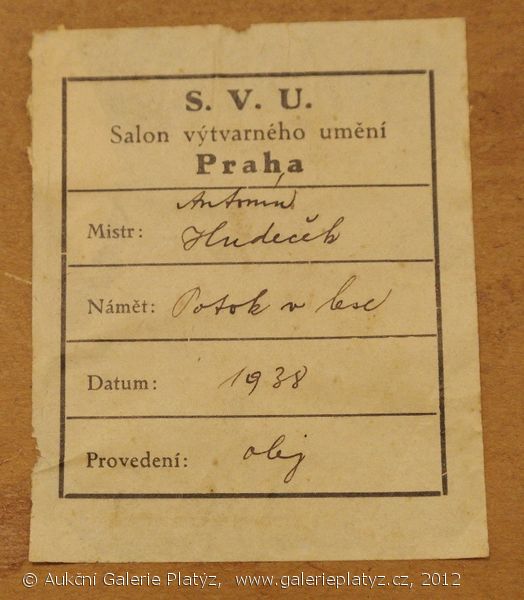 S. V. U.
Salon výtvarného umění
Praha
Antonín
Mistr: Hudeček
Námět: Potok v lese
Datum: 1938
Provedení: olej
© Aukční Galerie Platýz, www.galerieplatyz.cz, 2012